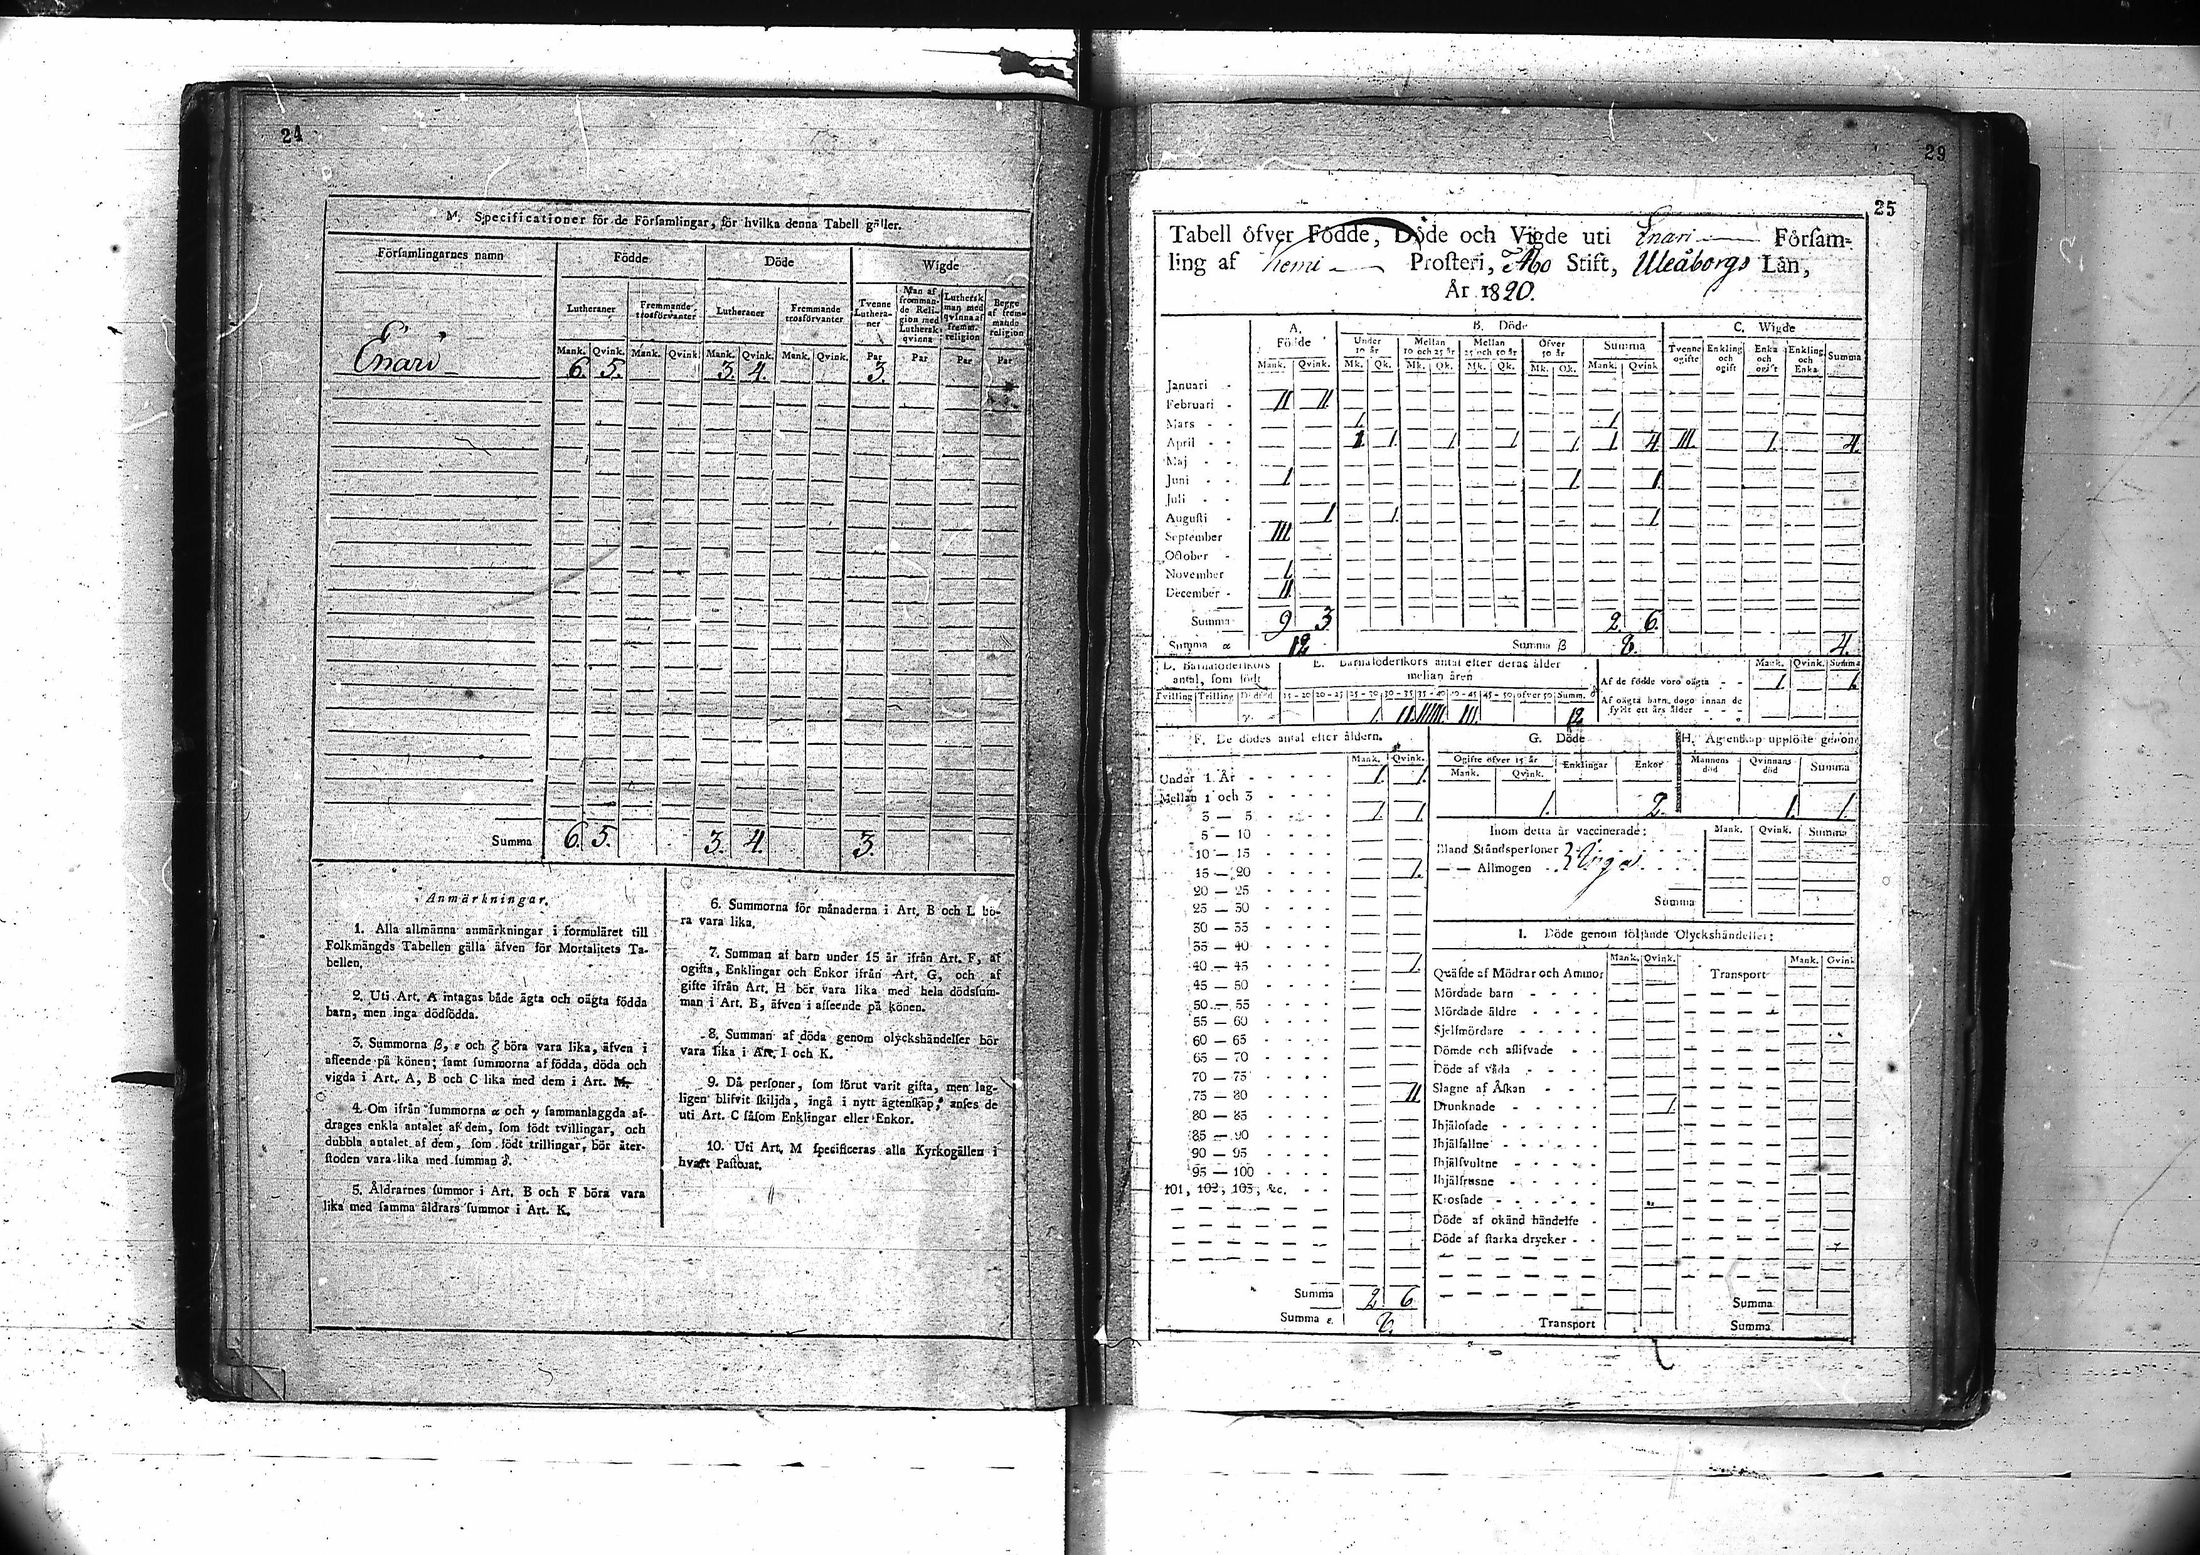 24
M. Specificationer för de Församlingar, för hvilka denna Tabell gäller.
Församlingarnes namn
Födde
Döde
Wigde
Lutheraner
Fremmande trosförvanter
Lutheraner
Fremmande trosförvanter
Tvenne Luthera-ner
Man af fromman-de Reli-gion med Luthersk qvinna
Luthersk man med qvinna af fremm. religion
Begge af frem-mande religion
Mank. Qvink. Mank. Qvink Mank. Qvink. Mank. Qvink. Par Par Par Par
Enari 6. 5. 3. 4. 3.
Summa 6. 5. 3. 4. 3.
Anmärkningar.
1. Alla allmänna anmärkningar i formuläret till
Folkmängds Tabellen gälla äfven för Mortalitets Ta-
bellen.
2. Uti Art. A intagas både ägta och oägta födda
barn, men inga dödfödda.
3. Summorna β, ε och ζ böra vara lika, äfven i
afseende på könen; samt summorna af födda, döda och
vigda i Art. A, B och C lika med dem i Art. M.
4. Om ifrån summorna α och γ sammanlaggda af-
drages enkla antalet af dem, som födt tvillingar, och
dubbla antalet af dem, som födt trillingar, bör åter-
stoden vara lika med summan δ.
5. Åldrarnes summor i Art. B och F böra vara
lika med samma åldrars summor i Art. K.
6. Summorna för månaderna i Art. B och L bö-
ra vara lika.
7. Summan af barn under 15 år ifrån Art. F, af
ogifta, Enklingar och Enkor ifrån Art. G, och af
gifte ifrån Art. H bör vara lika med hela dödssum-
man i Art. B, äfven i afseende på könen.
8. Summan af döda genom olyckshändelser bör
vara lika i Art. I och K.
9. Då personer, som förut varit gifta, men lag-
ligen blifvit skiljda, ingå i nytt ägtenskap, anses de
uti Art. C såsom Enklingar eller Enkor.
10. Uti Art. M specificeras alla Kyrkogällen i
hvart Pastorat.
29
25
Tabell öfver Födde, Döde och Vigde uti Enari Försam-
ling af Kemi Prosteri, Åbo Stift, Uleåborgs Län,
År 1820.
A. Födde
B. Döde
C. Wigde
Under 10 år
Mellan 10 och 25 år
Mellan 25 och 50 år
Öfver 50 år
Summa
Tvenne ogifte
Enkling och ogift
Enka och ogift
Enkling och Enka
Summa
Mank. Qvink. Mk. Qk. Mk. Qk. Mk. Qk. Mk. Qk. Mank. Qvink
Januari
Februari II II
Mars 1. 1
April 1 1 1 1 1 1 4 III. 1. 4.
Maj
Juni 1 1 1
Juli
Augusti 1 1 1
September III
October
November 1
December II
Summa 9 3 2. 6.
Summa α 12 Summa β 8. 4.
D. Barnaföderskors antal, som födt
E. Barnaföderskors antal efter deras ålder
mellan åren
Tvilling Trilling 15-20 20-25 25-30 30-35 35-40 40-45 45-50 öfver 50 Summ. δ
1. III. 12
Mank. Qvink. Summa
Af de födde voro oägta 1
Af oägta barn dogo innan de
fyllt ett års ålder
F. De dödes antal efter åldern.
Mank. Qvink.
Under 1. År 1. 1.
Mellan 1 och 3 1 1
3 — 5
5 — 10
10 — 15
15 — 20 1.
20 — 25
25 — 30
30 — 35
35 — 40
40 — 45 1
45 — 50
50 — 55
55 — 60
60 — 65
65 — 70
70 — 75
75 — 80 II
80 — 85
85 — 90
90 — 95
95 — 100
101, 102, 103, &c.
Summa 2 6
Summa ε. 8.
G. Döde
Ogifte öfver 15 år Enklingar Enkor
Mank. Qvink.
1. 2.
H. Ägtenskap upplöste genom
Mannens död Qvinnans död Summa
1. 1.
Inom detta år vaccinerade: Mank. Qvink. Summa
Bland Ståndspersoner
— — Allmogen } Inga
Summa
I. Döde genom följande Olyckshändelser:
Mank. Qvink. Mank. Qvink
Quäfde af Mödrar och Ammor Transport
Mördade barn
Mördade äldre
Sjelfmördare
Dömde och aflifvade
Döde af våda
Slagne af Åskan
Drunknade 1.
Ihjälofade
Ihjälfallne
Ihjälsvultne
Ihjälfrusne
Krossade
Döde af okänd händelse
Döde af starka drycker
Summa
Transport Summa